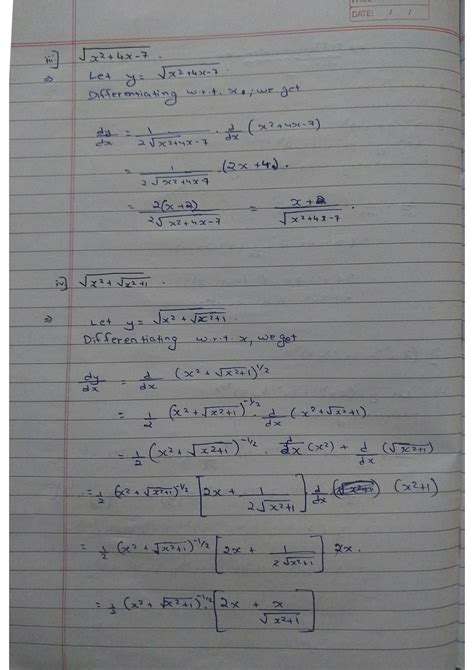 DATE: / /
iii] √(x²+4x-7) .
⇒ Let y = √(x²+4x-7) .
Differentiating w.r.t. x, we get
dy/dx = 1/(2√(x²+4x-7)) . d/dx (x²+4x-7)
= 1/(2√(x²+4x-7)) . (2x+4) .
= 2(x+2)/(2√(x²+4x-7)) = (x+2)/√(x²+4x-7) .
iv] √(x²+√(x²+1)) .
⇒ Let y = √(x²+√(x²+1)) .
Differentiating w.r.t. x, we get
dy/dx = d/dx (x²+√(x²+1))^1/2
= 1/2 (x²+√(x²+1))^-1/2 . d/dx (x²+√(x²+1))
= 1/2 (x²+√(x²+1))^-1/2 . d/dx (x²) + d/dx (√(x²+1))
= 1/2 (x²+√(x²+1))^-1/2 [2x + 1/(2√(x²+1))] d/dx (x²+1)
= 1/2 (x²+√(x²+1))^-1/2 [2x + 1/(2√(x²+1))] 2x .
= 1/2 (x²+√(x²+1))^-1/2 . [2x + x/√(x²+1)]